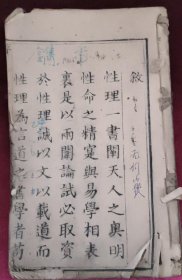 敘
性理一書闡天人之奧明
性命之精寔與易學相表
裏是以兩闈論試必取資
於性理誠以文以載道而
性理為信道之書學者苟